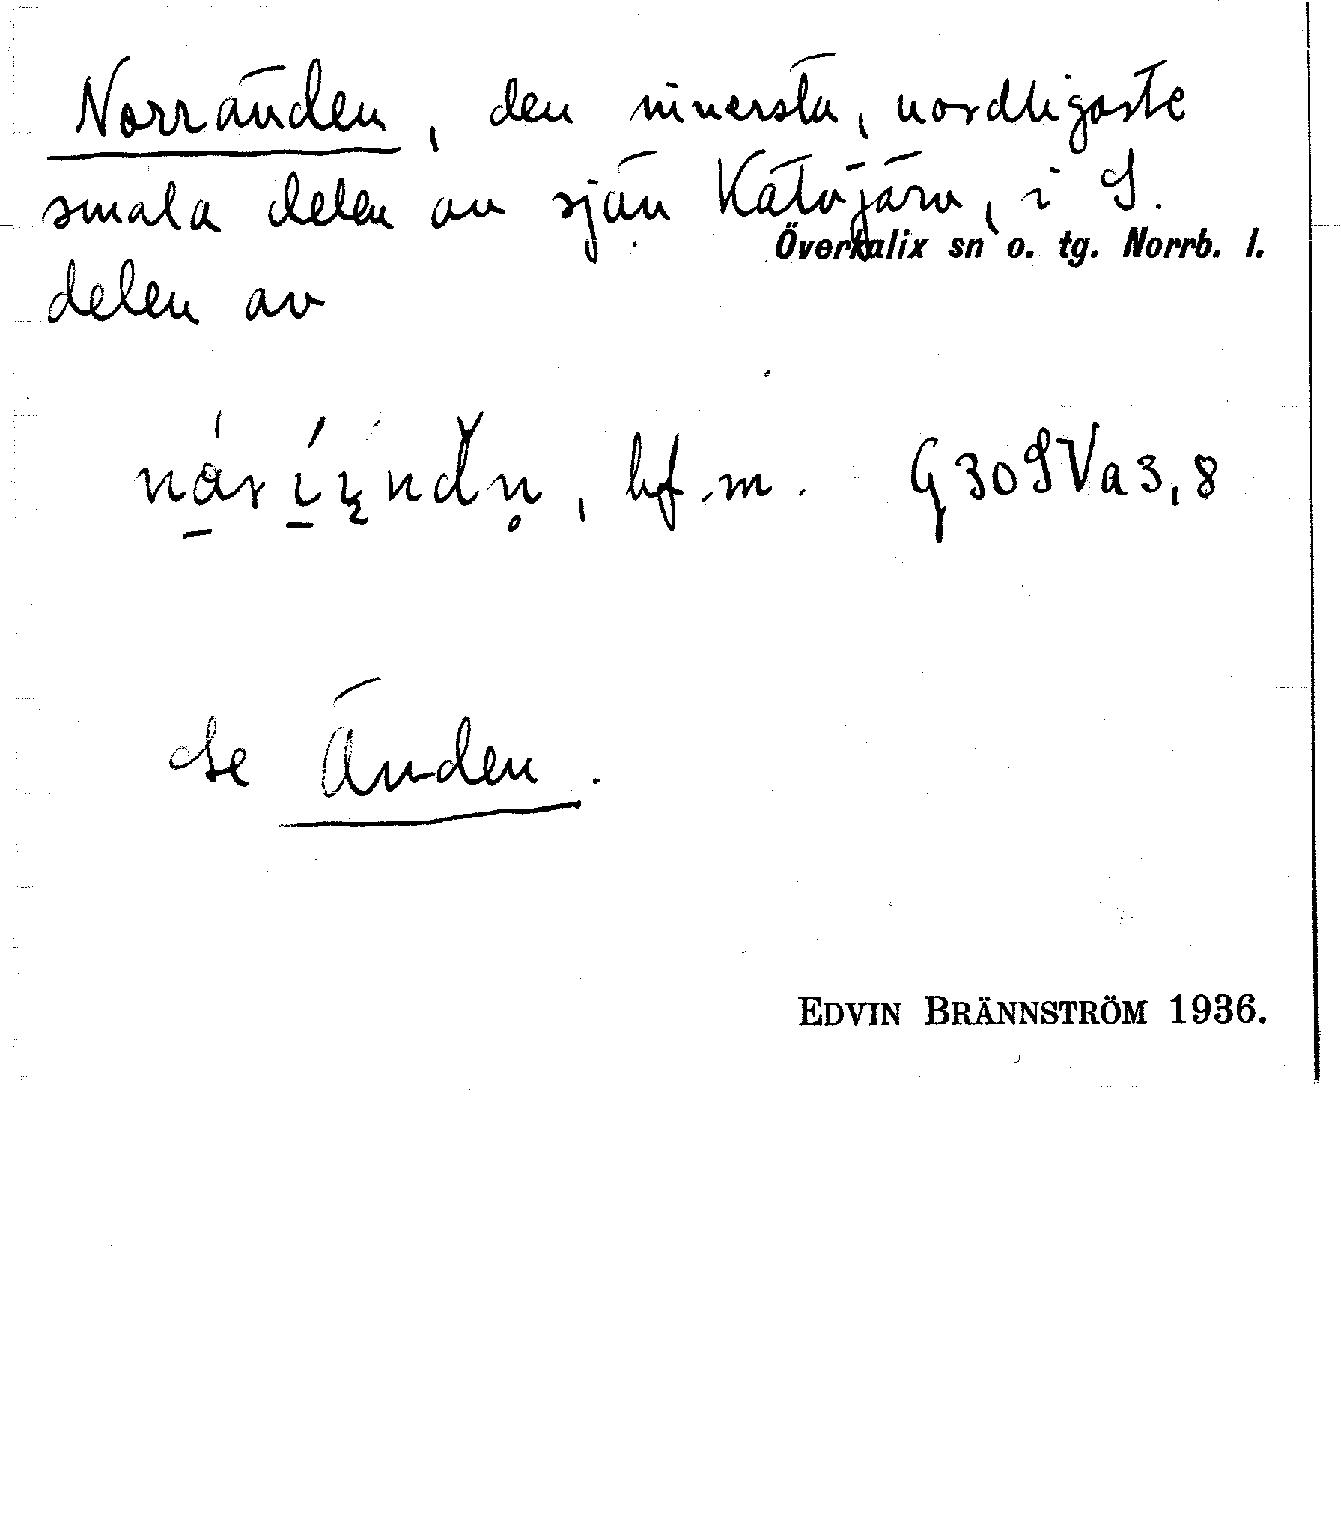 Norränden, den innersta, nordligaste
smala delen av sjön Kätöjärv, i S.
Överkalix sn o. tg. Norrb. l.
delen av
bf. m. G30SVa3,8
Se Änden.
EDVIN BRÄNNSTRÖM 1936.